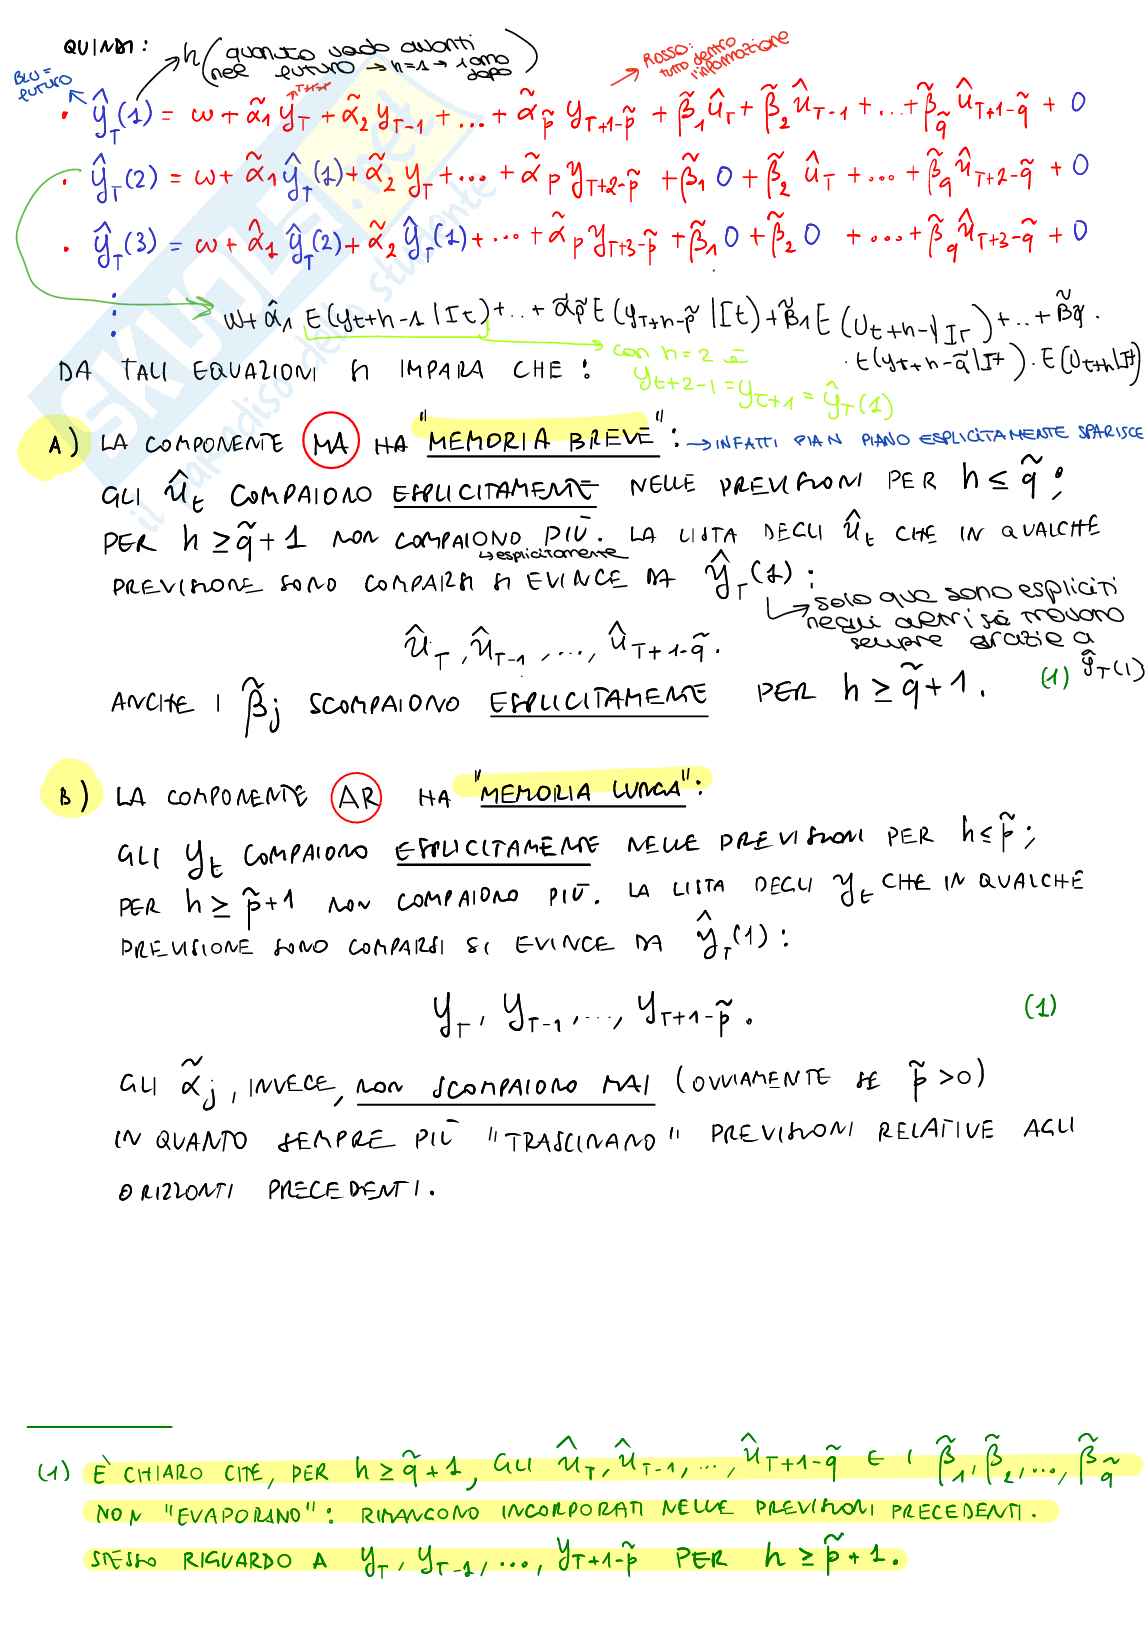 QUINDI:
h (quanto vado avanti
nel futuro → h=1 → 1 anno
dopo)
ROSSO:
tutto dentro
l'informazione
BLU =
FUTURO
• ŷ_T(1) = ω + α̃₁ y_T + α̃₂ y_T-1 + ... + α̃_p̃ y_T+1-p̃ + β̃₁ û_T + β̃₂ û_T-1 + ... + β̃_q̃ û_T+1-q̃ + 0
• ŷ_T(2) = ω + α̃₁ ŷ_T(1) + α̃₂ y_T + ... + α̃_p y_T+2-p̃ + β̃₁ 0 + β̃₂ û_T + ... + β̃_q û_T+2-q̃ + 0
• ŷ_T(3) = ω + α̂₁ ŷ_T(2) + α̃₂ ŷ_T(1) + ... + α̃_p y_T+3-p̃ + β̃₁ 0 + β̃₂ 0 + ... + β̃_q û_T+3-q̃ + 0
⋮
ω + α̂₁ E(y_t+h-1 | I_t) + ... + α̃_p̃ E(y_T+h-p̃ | I_t) + β̃₁ E(U_t+h-1 | I_T) + ... + β̃_q̃ .
· E(y_T+h-q̃ | I_t) . E(U_t+h | I_t)
con h=2 è
y_t+2-1 = y_t+1 = ŷ_T(1)
DA TALI EQUAZIONI SI IMPARA CHE:
A) LA COMPONENTE MA HA "MEMORIA BREVE": → INFATTI PIAN PIANO ESPLICITAMENTE SPARISCE
GLI û_t COMPAIONO ESPLICITAMENTE NELLE PREVISIONI PER h ≤ q̃;
PER h ≥ q̃+1 NON COMPAIONO PIÙ. LA LISTA DEGLI û_t CHE IN QUALCHE
→ esplicitamente
PREVISIONE SONO COMPARSI SI EVINCE DA ŷ_T(1):
→ solo qua sono espliciti
negli altri si trovano
sempre grazie a
ŷ_T(1)
û_T, û_T-1, ..., û_T+1-q̃.
(1)
ANCHE I β̃_j SCOMPAIONO ESPLICITAMENTE PER h ≥ q̃+1.
B) LA COMPONENTE AR HA "MEMORIA LUNGA":
GLI y_t COMPAIONO ESPLICITAMENTE NELLE PREVISIONI PER h ≤ p̃;
PER h ≥ p̃+1 NON COMPAIONO PIÙ. LA LISTA DEGLI y_t CHE IN QUALCHE
PREVISIONE SONO COMPARSI SI EVINCE DA ŷ_T(1):
y_T, y_T-1, ..., y_T+1-p̃. (1)
GLI α̃_j, INVECE, NON SCOMPAIONO MAI (OVVIAMENTE SE p̃ >0)
IN QUANTO SEMPRE PIÙ "TRASCINANO" PREVISIONI RELATIVE AGLI
ORIZZONTI PRECEDENTI.
(1) È CHIARO CHE, PER h ≥ q̃+1, GLI û_T, û_T-1, ..., û_T+1-q̃ E I β̃₁, β̃₂, ..., β̃_q̃
NON "EVAPORANO": RIMANGONO INCORPORATI NELLE PREVISIONI PRECEDENTI.
STESSO RIGUARDO A y_T, y_T-1, ..., y_T+1-p̃ PER h ≥ p̃+1.
SKUOLA.net
il paradiso dello studente